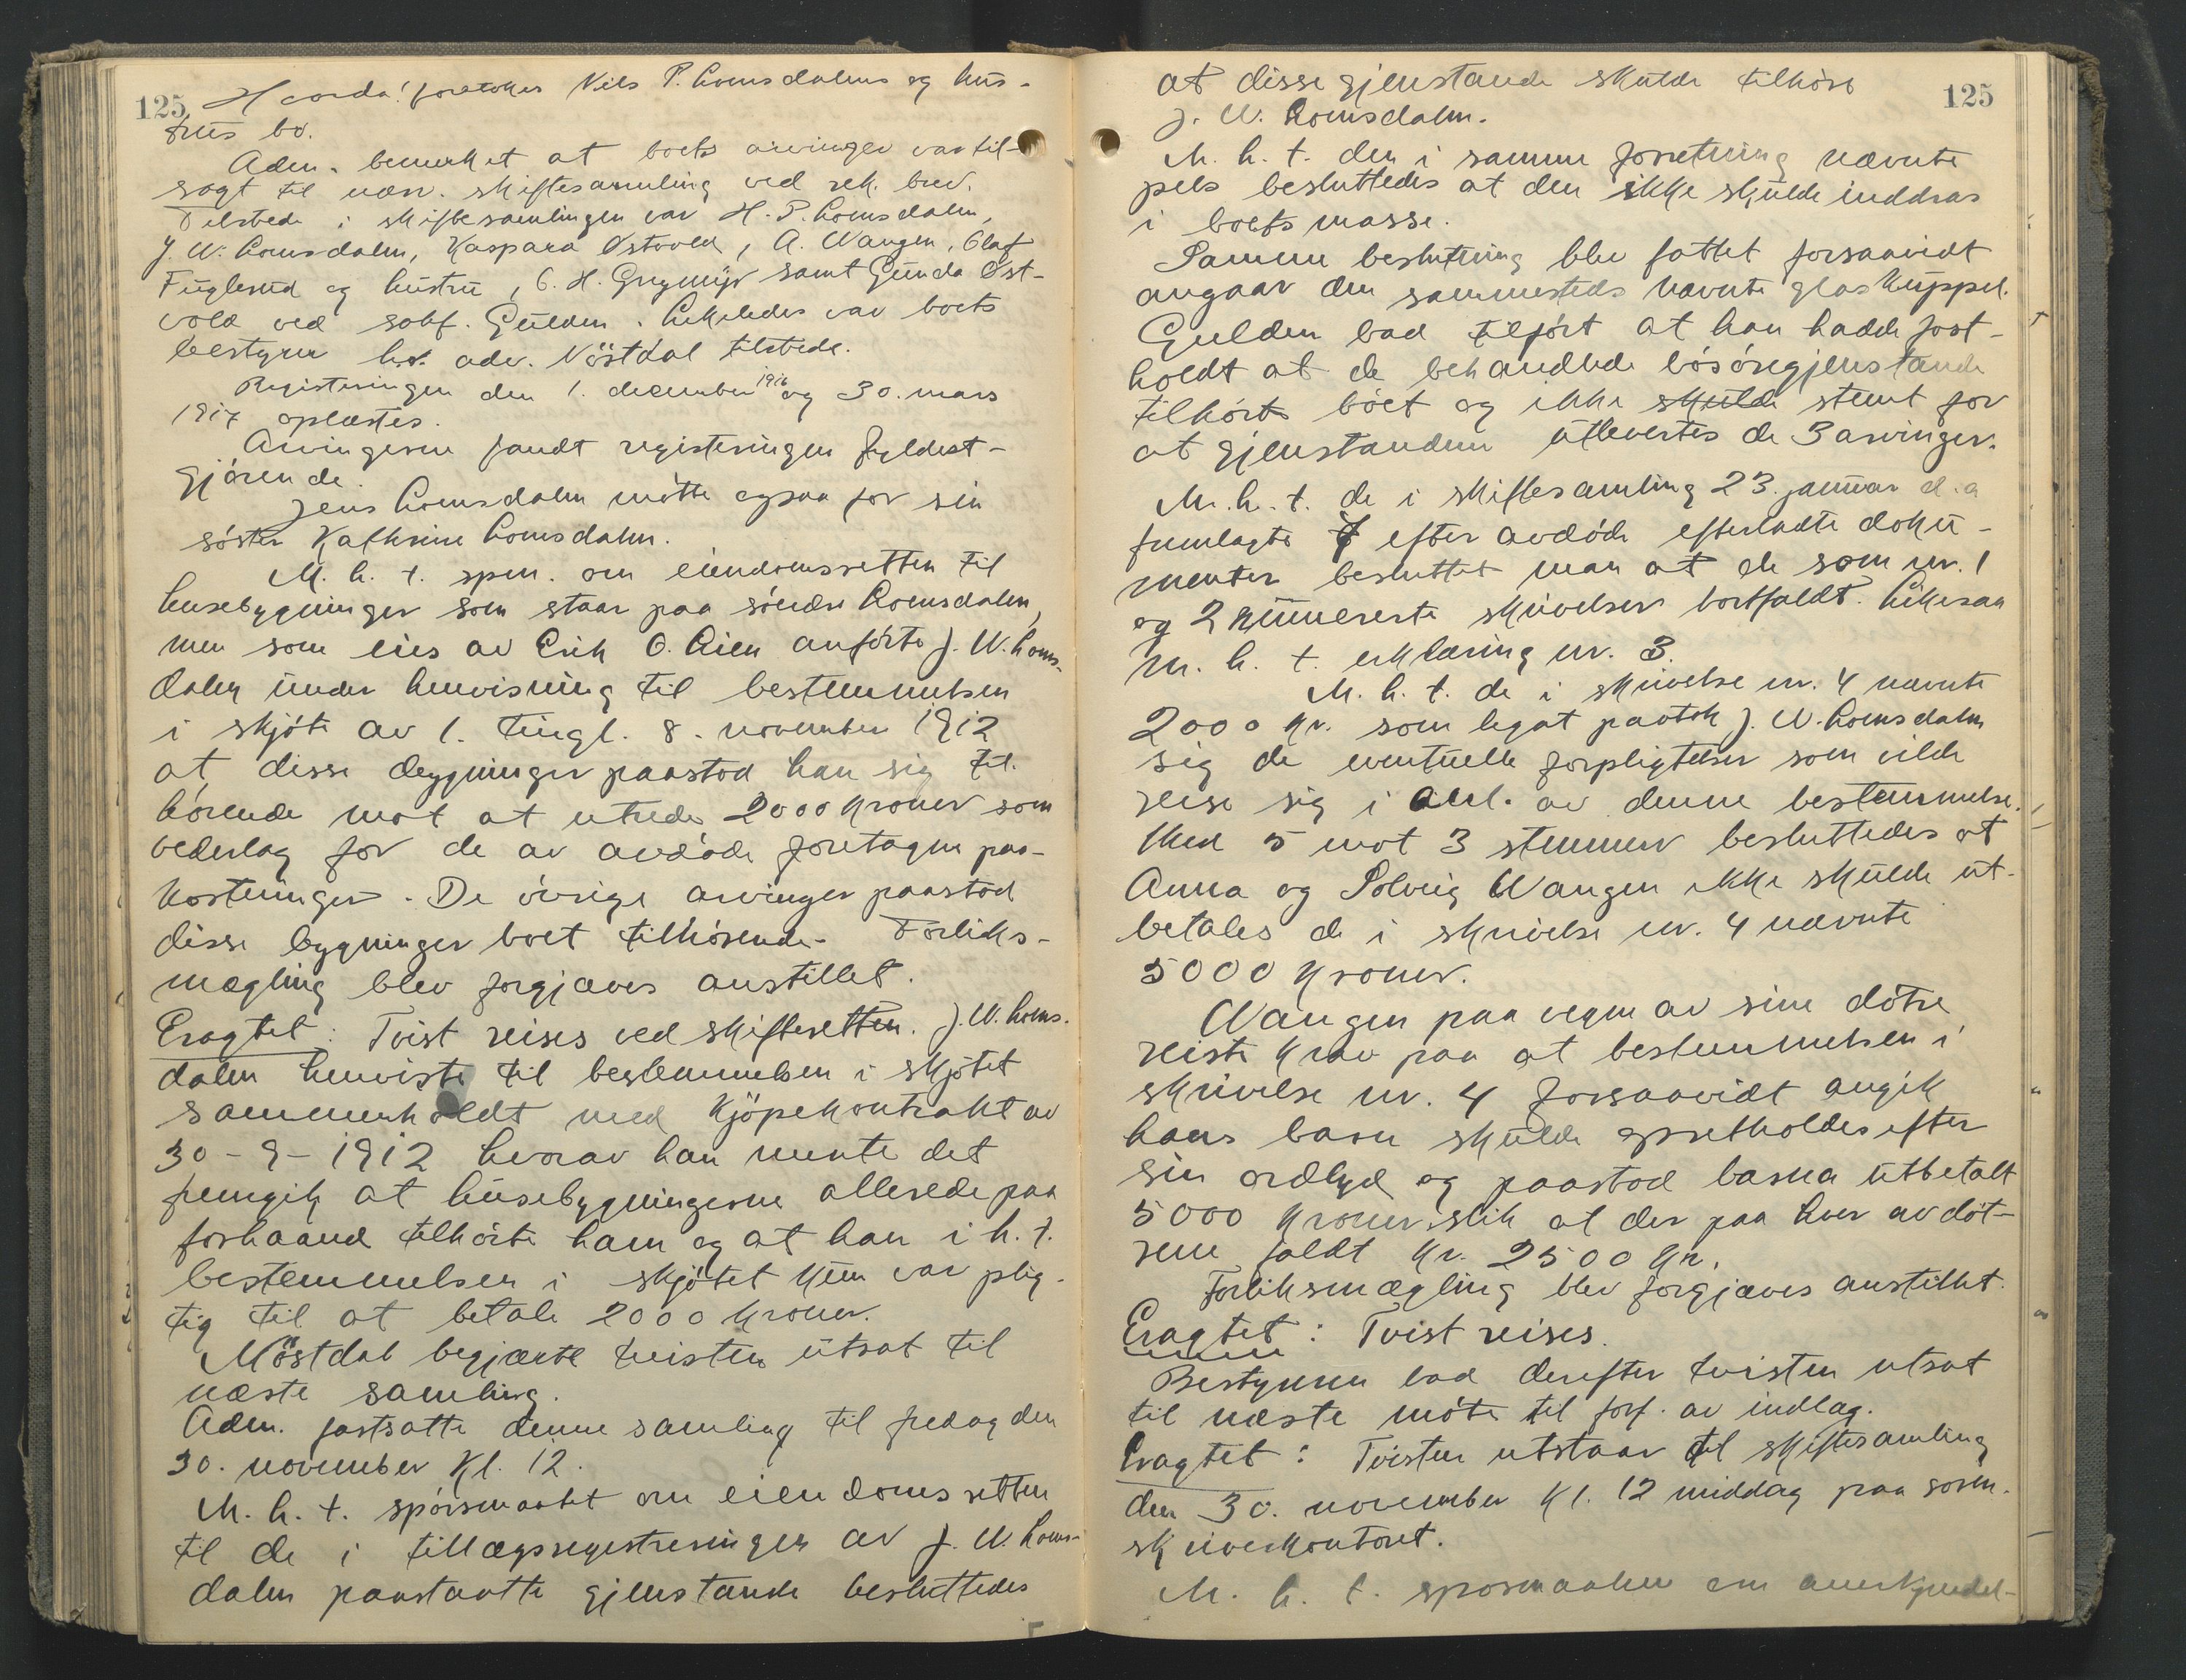 125 H corda! foretokes Nils P. Lomsdalens og hus-
trus bo.
Adm. bemerket at boets arvinger var til-
sagt til nærv. skiftesamling ved rek. brev.
Tilstede i skiftesamlingen var H. P. Lomsdalen,
J. W. Lomsdalen, Kaspara Østvold, A. Wangen, Olaf
Fuglerud og hustru, C. H. Grymyr samt Gunda Øst-
vold ved sakf. Gulden. Likeledes var boets
bestyrer h.r. adv. Nöstdal tilstede.
Registeringen den 1. december 1916 og 30. mars
1917 oplæstes.
Arvingerne fandt registeringen fyldest-
gjørende.
Jens Lomsdalen møtte ogsaa for sin
søster Kathrine Lomsdalen.
M. h. t. spm. om eiendomsretten til
husebygninger som staar paa søndre Lomsdalen,
men som eies av Erik O. Lien anførte J. W. Loms-
dalen under henvisning til bestemmelsen
i skjøte av 1. tingl. 8. november 1912
at disse dygninger paastod han sig til-
hørende mot at utrede 2000 kroner som
vederlag for de av avdøde foretagne paa-
kostninger. De øvrige arvinger paastod
disse bygninger boet tilhørende. Forliks-
mægling blev forgjæves anstillet.
Eragtet: Tvist reises ved skifteretten. J. W. Loms-
dalen henviste til bestemmelsen i skjøtet
sammenholdt med kjøpekontrakt av
30-9-1912 hvorav han mente det
fremgik at husebygningerne allerede paa
forhaand tilhørte ham og at han i h. t.
bestemmelsen i skjøtet kun var plig-
tig til at betale 2000 kroner.
Nöstdal begjærte tvisten utsat til
næste samling.
Adm. fastsatte denne samling til fredag den
30. november kl. 12.
M. h. t. spørsmaalet om eiendomsretten
til de i tillægsregistreringen av J. W. Loms-
dalen paastaatte gjenstande besluttedes
125
at disse gjenstande skulde tilhøre
J. W. Lomsdalen.
M. h. t. den i samme forretning nævnte
pels besluttedes at den ikke skulde inddras
i boets masse.
Samme beslutning blev fattet forsaavidt
angaar den sammesteds nævnte glaskuppel.
Gulden bad tilført at han hadde fast-
holdt at de behandlede løsøregjenstande
tilhørte boet og ikke skulde stemt for
at gjenstandene utlevertes de 3 arvinger.
M. h. t. de i skiftesamling 23. januar d. a
fremlagte 7 efter avdøde efterladte doku-
menter besluttet man at de som nr. 1
og 2 nummererte skrivelser bortfaldt. Likesaa
m. h. t. erklæring nr. 3.
M. h. t. de i skrivelse nr. 4 nævnte
2000 kr. som legat paatok J. W. Lomsdalen
sig de eventuelle forpligtelser som vilde
reise sig i anl. av denne bestemmelse.
Med 5 mot 3 stemmer besluttedes at
Anna og Solveig Wangen ikke skulde ut-
betales de i skrivelse nr. 4 nævnte
5000 kroner.
Wangen paa vegne av sine døtre
reiste krav paa at bestemmelsen i
skrivelse nr. 4 forsaavidt angik
hans barn skulde opretholdes efter
sin ordlyd og paastod barna utbetalt
5000 kroner, slik at der paa hver av døt-
rene faldt kr. 2500 kr.
Forliksmægling blev forgjæves anstillet.
Eragtet: Tvist reises.
Bestyreren bad derefter tvisten utsat
til næste møte til forf. av indlæg.
Eragtet: Tvisten utstaar til skiftesamling
den 30. november kl. 12 middag paa soren-
skriverkontoret.
M. h. t. spørsmaalene om anerkjendel-